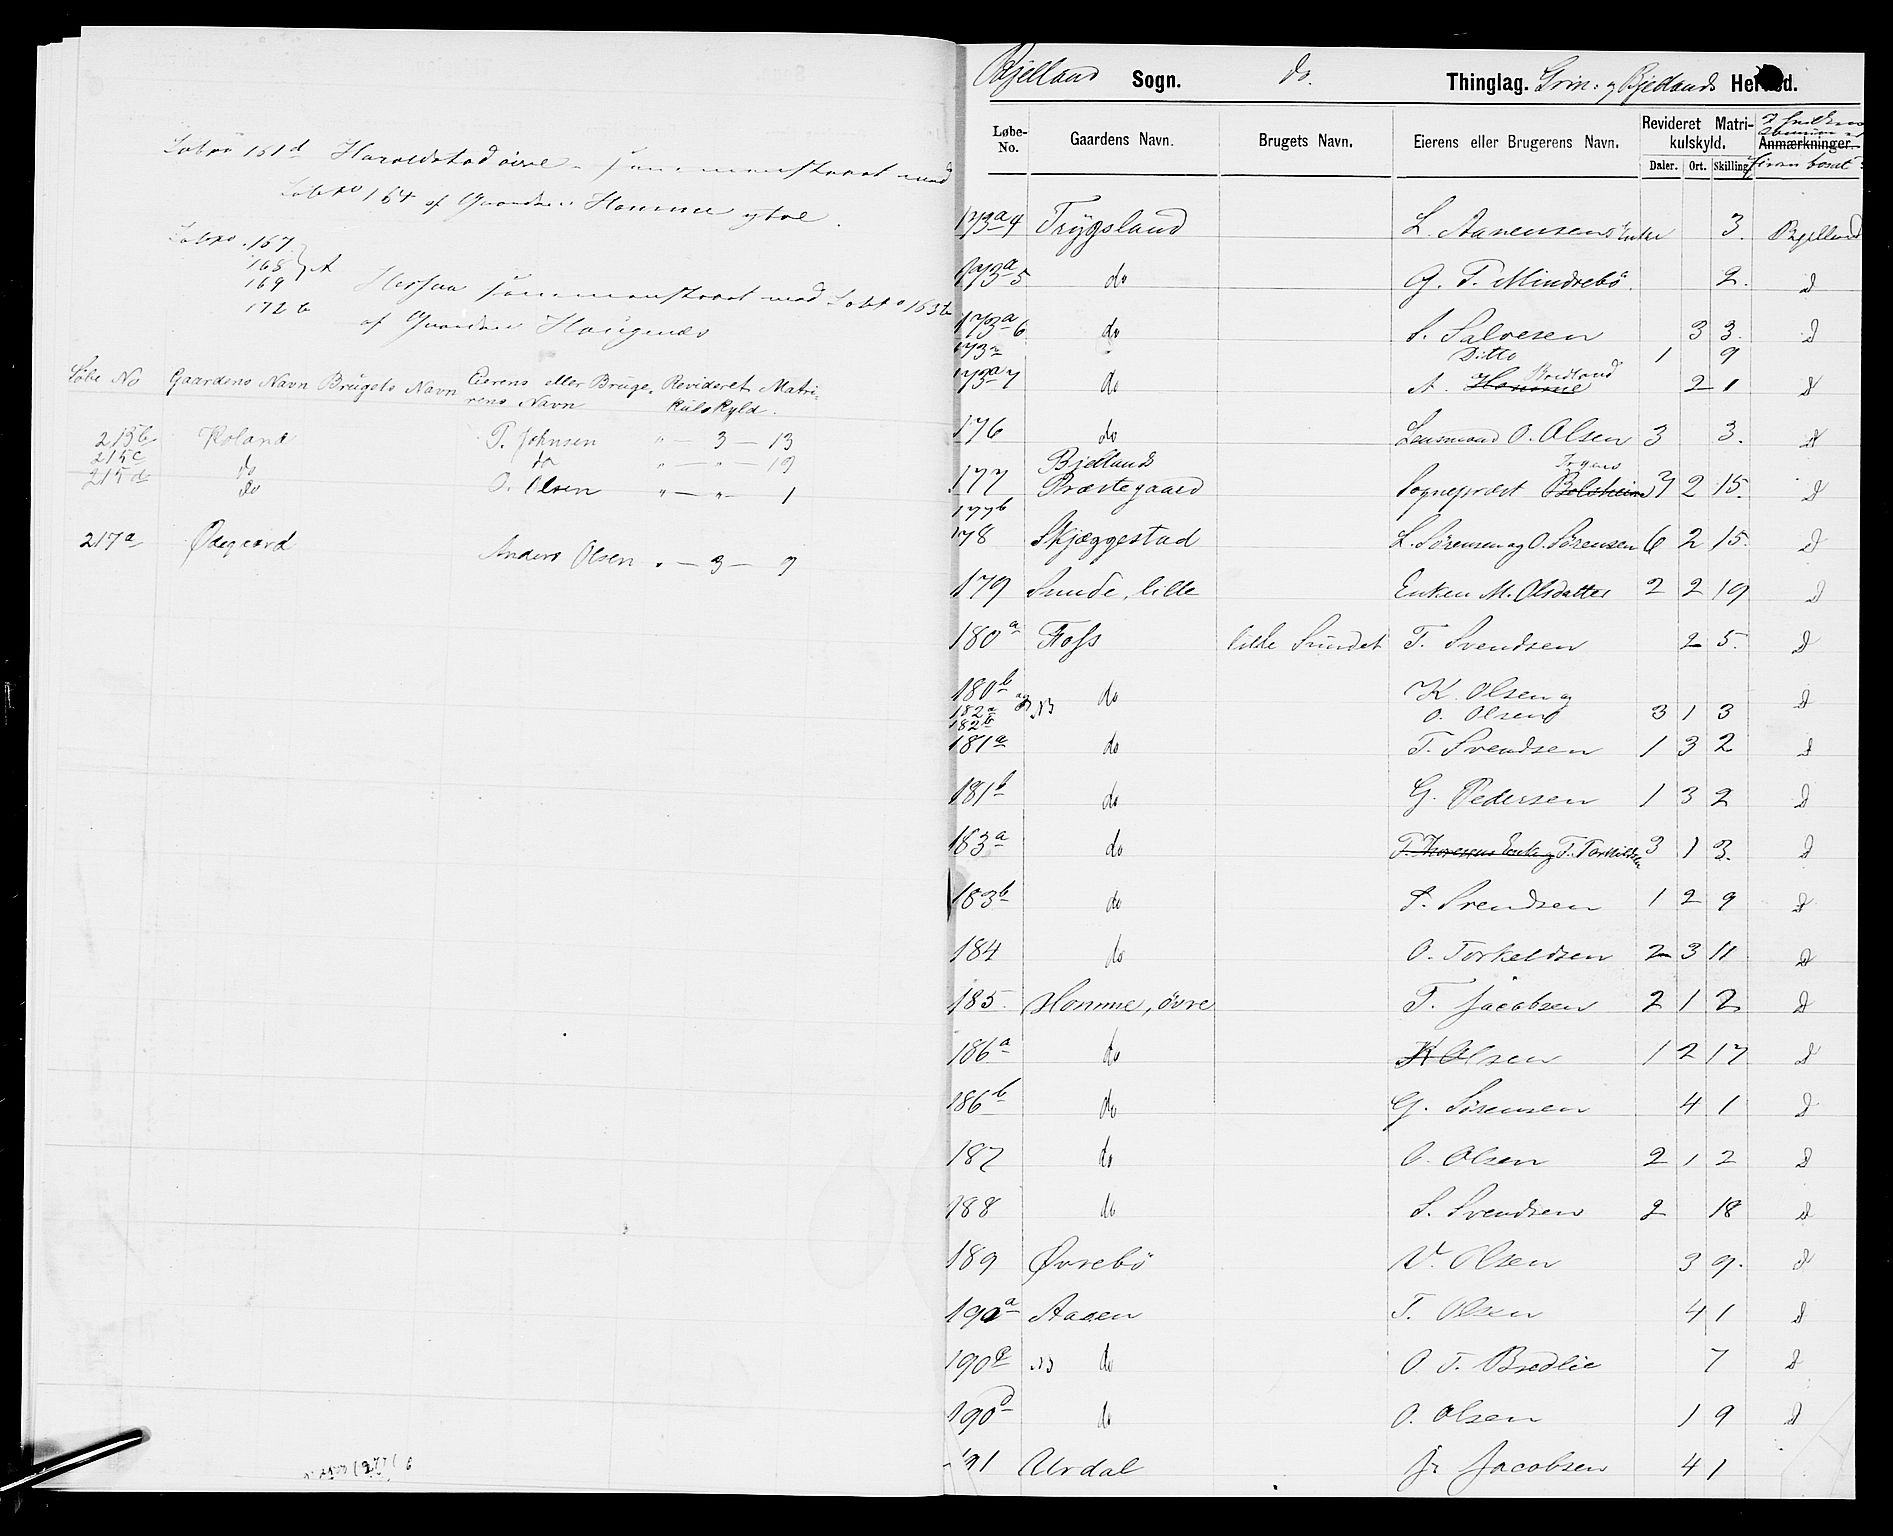 Løbno 151d Haroldstad øvre - sammenstaaet med
Løbno 164 af Gaarden Homme ytre.
Løbno. 167
168
169
172 b
Hessaa sammenstaaet med Løbno 163b
af Gaarden Haugenæs
Løbe No Gaardens Navn Brugets Navn Eierens eller Bruge- Revideret Matri-
rens Navn kulskyld.
215b Roland P. Johnsen " — 3 — 13
215c do do " — " — 19
215d do O. Olsen " — " — 1
217a Ødegaard Anders Olsen " — 3 — 9
Bjelland Sogn. do. Thinglag. Grin. og Bjellands Herred.
Løbe-No. Gaardens Navn. Brugets Navn. Eierens eller Brugerens Navn. Revideret Matrikulskyld. Anmærkninger.
Daler. Ort. Skilling.
173a4 Trygsland L. Aanensens Enke 3. Bjelland
173a5 do G. T. Mindrebö. 2. D
173a6 do S. Salvesen 3 3. D
173 Ditto 1 9
173a7 do A. Homme Bredland 2 1 D
176 do Lensmand O. Olsen 3 3. D
177 Bjellands Præstegaard Sognepræst 3 2 15. D
177b
178 Skjæggestad L. Sørensen og O. Sørensen 6 2 15. D
179 Sunde, lille Enken M. Olsdatter 2 2 19 D
180a Foss lille Sundet T. Svendsen 2 5. D
180b og NB do K. Olsen og D
182a
182b O. Olsen 3 1 3
181a do T. Svendsen 1 3 2 D
181b do G. Pedersen 1 3 2 D
183a do T. Thoresens Enke og T. Torkildsen 3 1 3. D
183b do S. Svendsen 1 2 9 D
184 do O. Torkeldsen 2 3 11 D
185. Homme, övre T. Jacobsen 2 1 2 D
186a do K Olsen 1 2 17 D
186b do G. Sörensen 4 1 D
187 do O. Olsen 2 1 2 D
188 do S. Svendsen 2 18 D
189 Øvrebö V. Olsen 3 9. D
190a Aasen T. Olsen 4 1 D
190c NB do O. T. Bredlie 7 D
190d do O. Olsen 1 9 D
191 Urdal Jacobsen 4 1